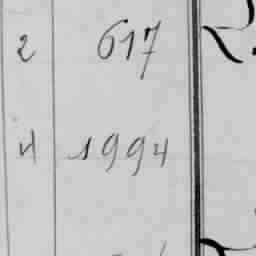 2 617
4 1994